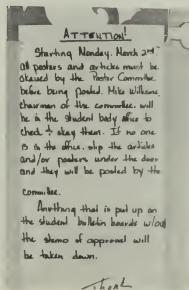 ATTENTION!
Starting Monday, March 2nd
all posters and articles must be
okayed by the Poster Committee
before being posted. Mike Wilkens,
chairman of the committee, will
be in the student body office to
check & okay them. If no one
is in the office, slip the articles
and/or posters under the door
and they will be posted by the
committee.
Anything that is put up on
the student bulletin boards w/out
the stamp of approval will
be taken down.